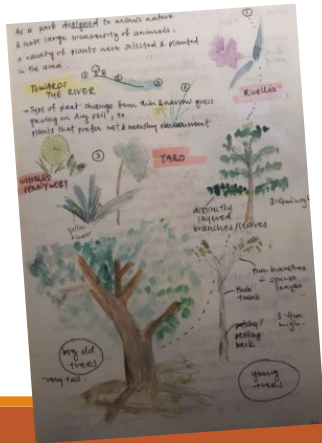 As a park designed to mimic nature
& host large biodiversity of animals,
a variety of plants were selected & planted
in the area.
①
TOWARDS
THE RIVER
①
②
③
→ Type of plant change from thin & narrow grass
growing on dry soil, to
plants that prefer wet & marshy environment
Ruellia
WHORLED
PENNYWORT
③
TARO
yellow
flower
distinctly
layered
branches/leaves
3-4m high
thin branches
sparse
leaves
thin
trunk
patchy/
peeling
bark
3-4m
high
big old
trees
very tall
young
trees